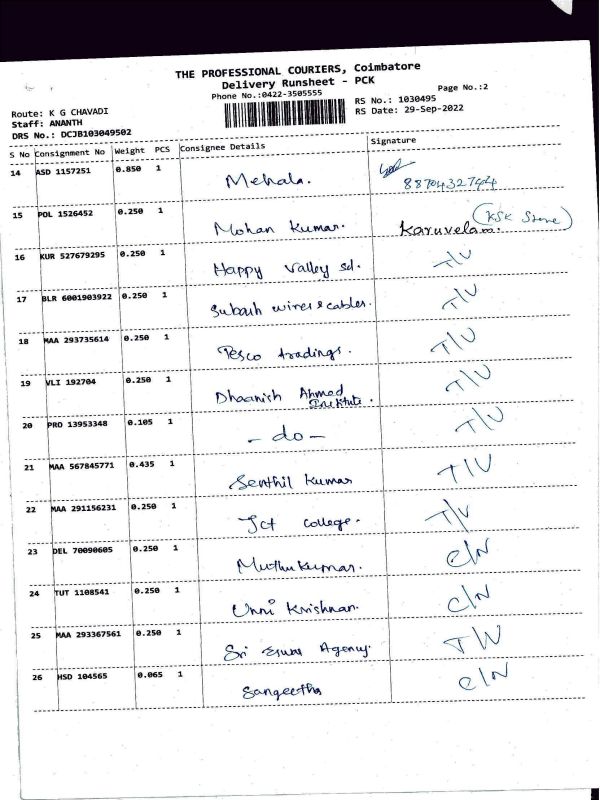 THE PROFESSIONAL COURIERS, Coimbatore
Delivery Runsheet - PCK
Phone No.:0422-3505555
Page No.:2
Route: K G CHAVADI
RS No.: 1030495
Staff: ANANTH
RS Date: 29-Sep-2022
DRS No.: DCJB103049502
S No Consignment No Weight PCS Consignee Details Signature
14 ASD 1157251 0.850 1 Mehala.
8870432744
15 POL 1526452 0.250 1 Mohan Kumar. Karuvelam. (KSK Store)
16 KUR 527679295 0.250 1 Happy Valley sd. T/V
17 BLR 6001903922 0.250 1 Subash wires & cables. T/V
18 MAA 293735614 0.250 1 Tesco tradings. T/V
19 VLI 192704 0.250 1 Dhaanish Ahmed T/V
Institute.
20 PRO 13953348 0.105 1 - do - T/V
21 MAA 567845771 0.435 1 Senthil Kumar T/V
22 MAA 291156231 0.250 1 Jct college. T/V
23 DEL 70090605 0.250 1 Muthukumar. C/N
24 TUT 1108541 0.250 1 Unni Krishnan. C/N
25 MAA 293367561 0.250 1 Sri Eswar Agency. T/V
26 HSD 104565 0.065 1 Sangeetha C/N